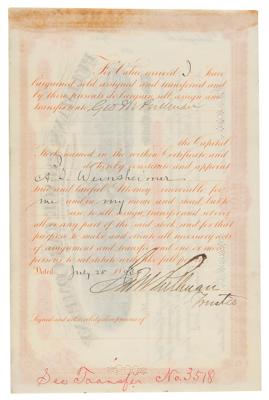 For Value received I have
bargained sold, assigned and transferred and
by these presents do bargain, sell, assign and
transfer unto Geo M Pullman
the Capital
Stock named in the within Certificate and
I do hereby constitute and appoint
A. S. Weinsheimer
true and lawful Attorney irrevocable for
me and in my name and stead but to
use to sell, assign, transfer and set over
all or any part of the said stock, and for that
purpose to make and execute all necessary acts
of assignment and transfer and one or more
persons to substitute with like full power
Dated July 20
Geo M Pullman
Trustee
Signed and acknowledged in presence of
See Transfer No. 3518